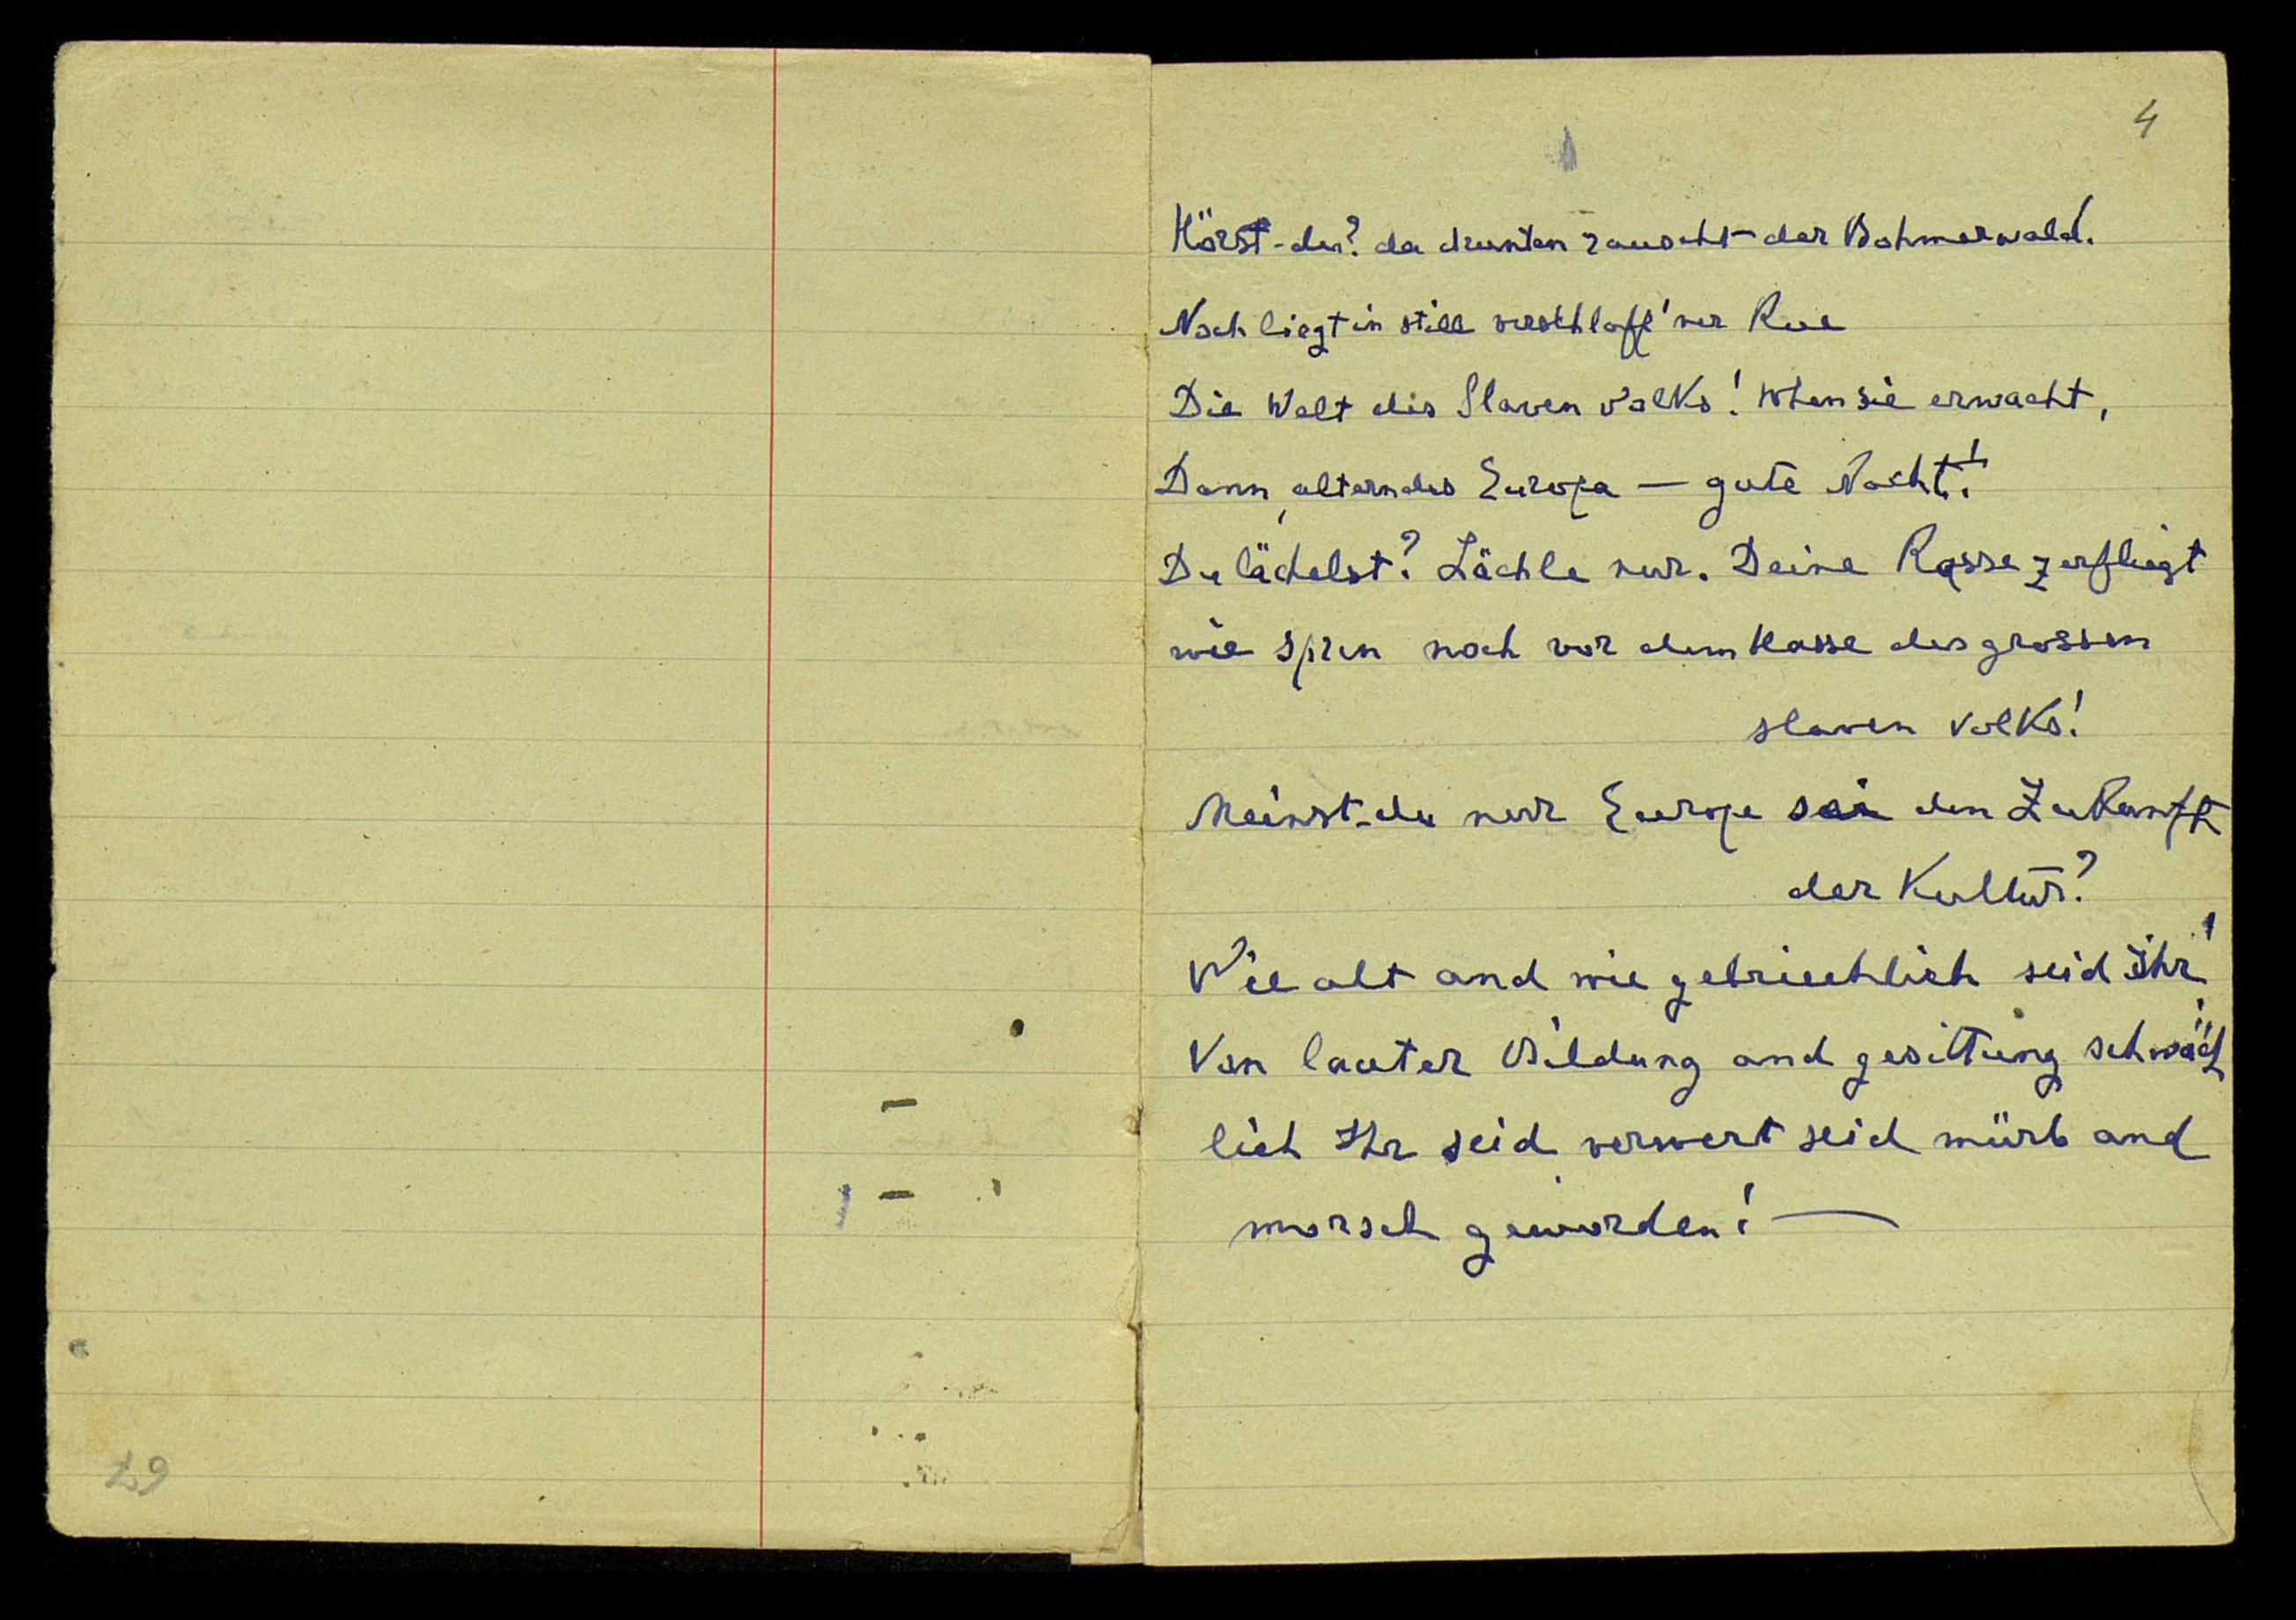 4
Hörst-du? da drunten rauscht der Bohmerwald.
Noch liegt in still verschlaff'ner Rue
Die Welt des Slaven volks! When sie erwacht,
Dann, alterndes Europa — gute Nacht!
Du lächelst? Lächle nur. Deine Rasse zerfliegt
wie Spren noch vor dem Hasse des grossen
slaven volks!
Meinst-du nur Europe sei den Zukunft
der Kultur?
Wie alt and wie gebriechlich seid Ihr!
Von lauter Bildung and gesittung schwäch
lich Ihr seid verwert seid mürb and
morsch geworden! —
67